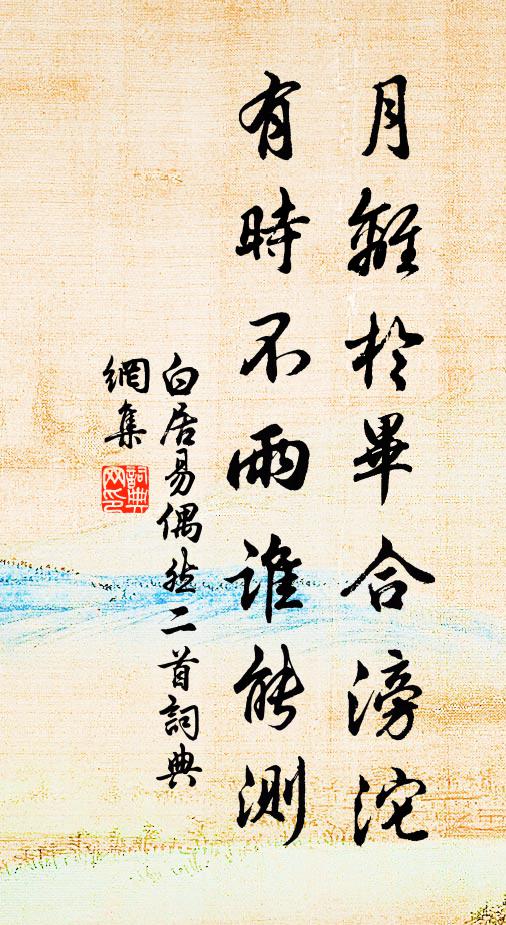 月離於畢合滂沱
有時不雨誰能測
白居易偶然二首詞典
網集
詞典
网印